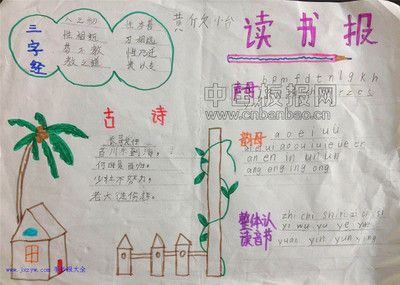 三字经
人之初
性本善
性相近
习相远
苟不教
性乃迁
教之道
贵以专
黄欣怡
读书报
声母
b p m f d t n l g k h
中国板报网
www.cnbanbao.cn
古诗
百川东到海,
何时复西归。
少壮不努力,
老大徒伤悲。
韵母
a o e i u ü
ai ei ui ao ou iu ie üe er
an en in un ün
ang eng ing ong
整体认读音节
zhi chi shi ri zi ci si
yi wu yu ye yue
yuan yin yun ying